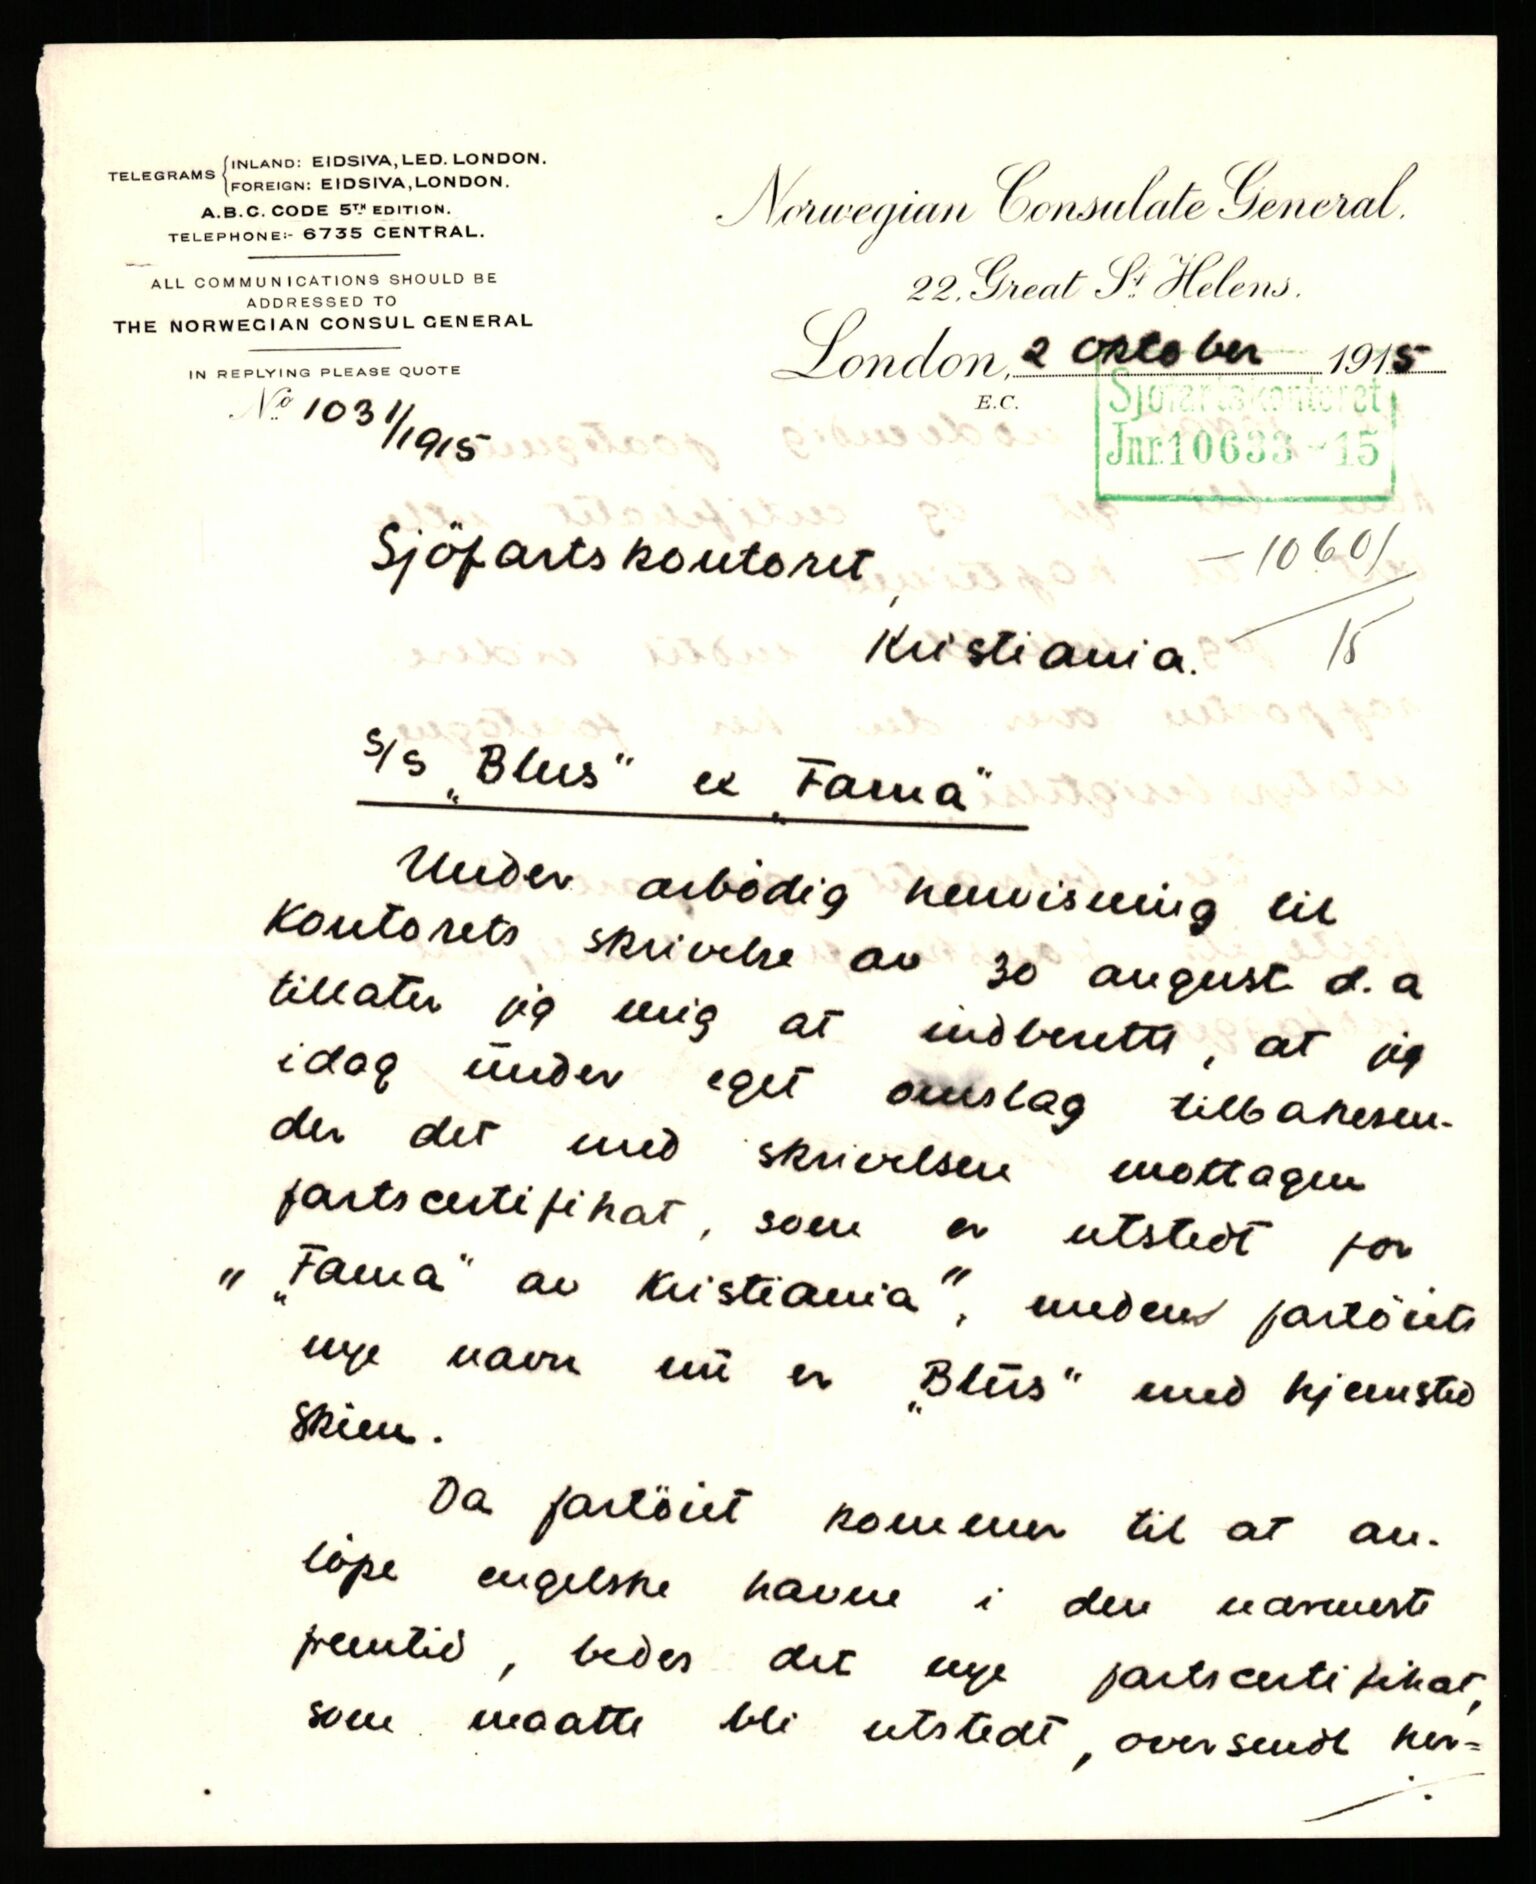 TELEGRAMS {INLAND: EIDSIVA, LED. LONDON.
FOREIGN: EIDSIVA, LONDON.
A.B.C. CODE 5TH EDITION.
TELEPHONE:- 6735 CENTRAL.
ALL COMMUNICATIONS SHOULD BE
ADDRESSED TO
THE NORWEGIAN CONSUL GENERAL
IN REPLYING PLEASE QUOTE
No 1031/1915
Norwegian Consulate General.
22, Great St Helens.
London, 2 Oktober 1915
E.C.
Sjøfartskontoret
Jnr. 10633-15
Sjöfartskontoret,
- 10601/15
Kristiania.
S/S „Blus" ex „Fama"
Under ærbödig henvisning til
Kontorets skrivelse av 30 august d.a
tillater jeg mig at indberette, at jeg
idag under eget omslag tilbakesen-
der det med skrivelsen mottagne
fartscertifikat, som er utstedt for
" „Fama" av Kristiania", medens fartöiets
nye navn nu er „Blus" med hjemsted
Skien.
Da fartöiet kommer til at an-
löpe engelske havne i den nærmeste
fremtid, bedes det nye fartscertifikat,
som maatte bli utstedt, oversendt her=